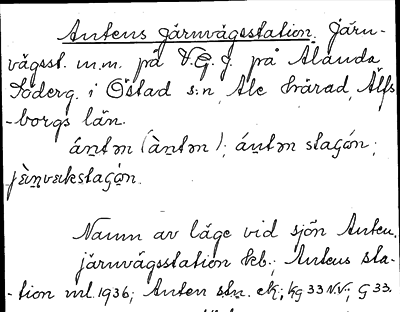 Antens järnvägsstation. Järn-
vägsst. m.m. på V.G.J. på Alanda
Söderg. i Östad s:n, Ale härad, Älfs
-borgs län.
ántən (àntən); ántən stagón;
jæ̀ɳvækstagón.
Namn av läge vid sjön Anten.
järnvägsstation keb.; Antens sta-
-tion ml. 1936; Anten stn. ek; kg 33 N.V.; G 33.